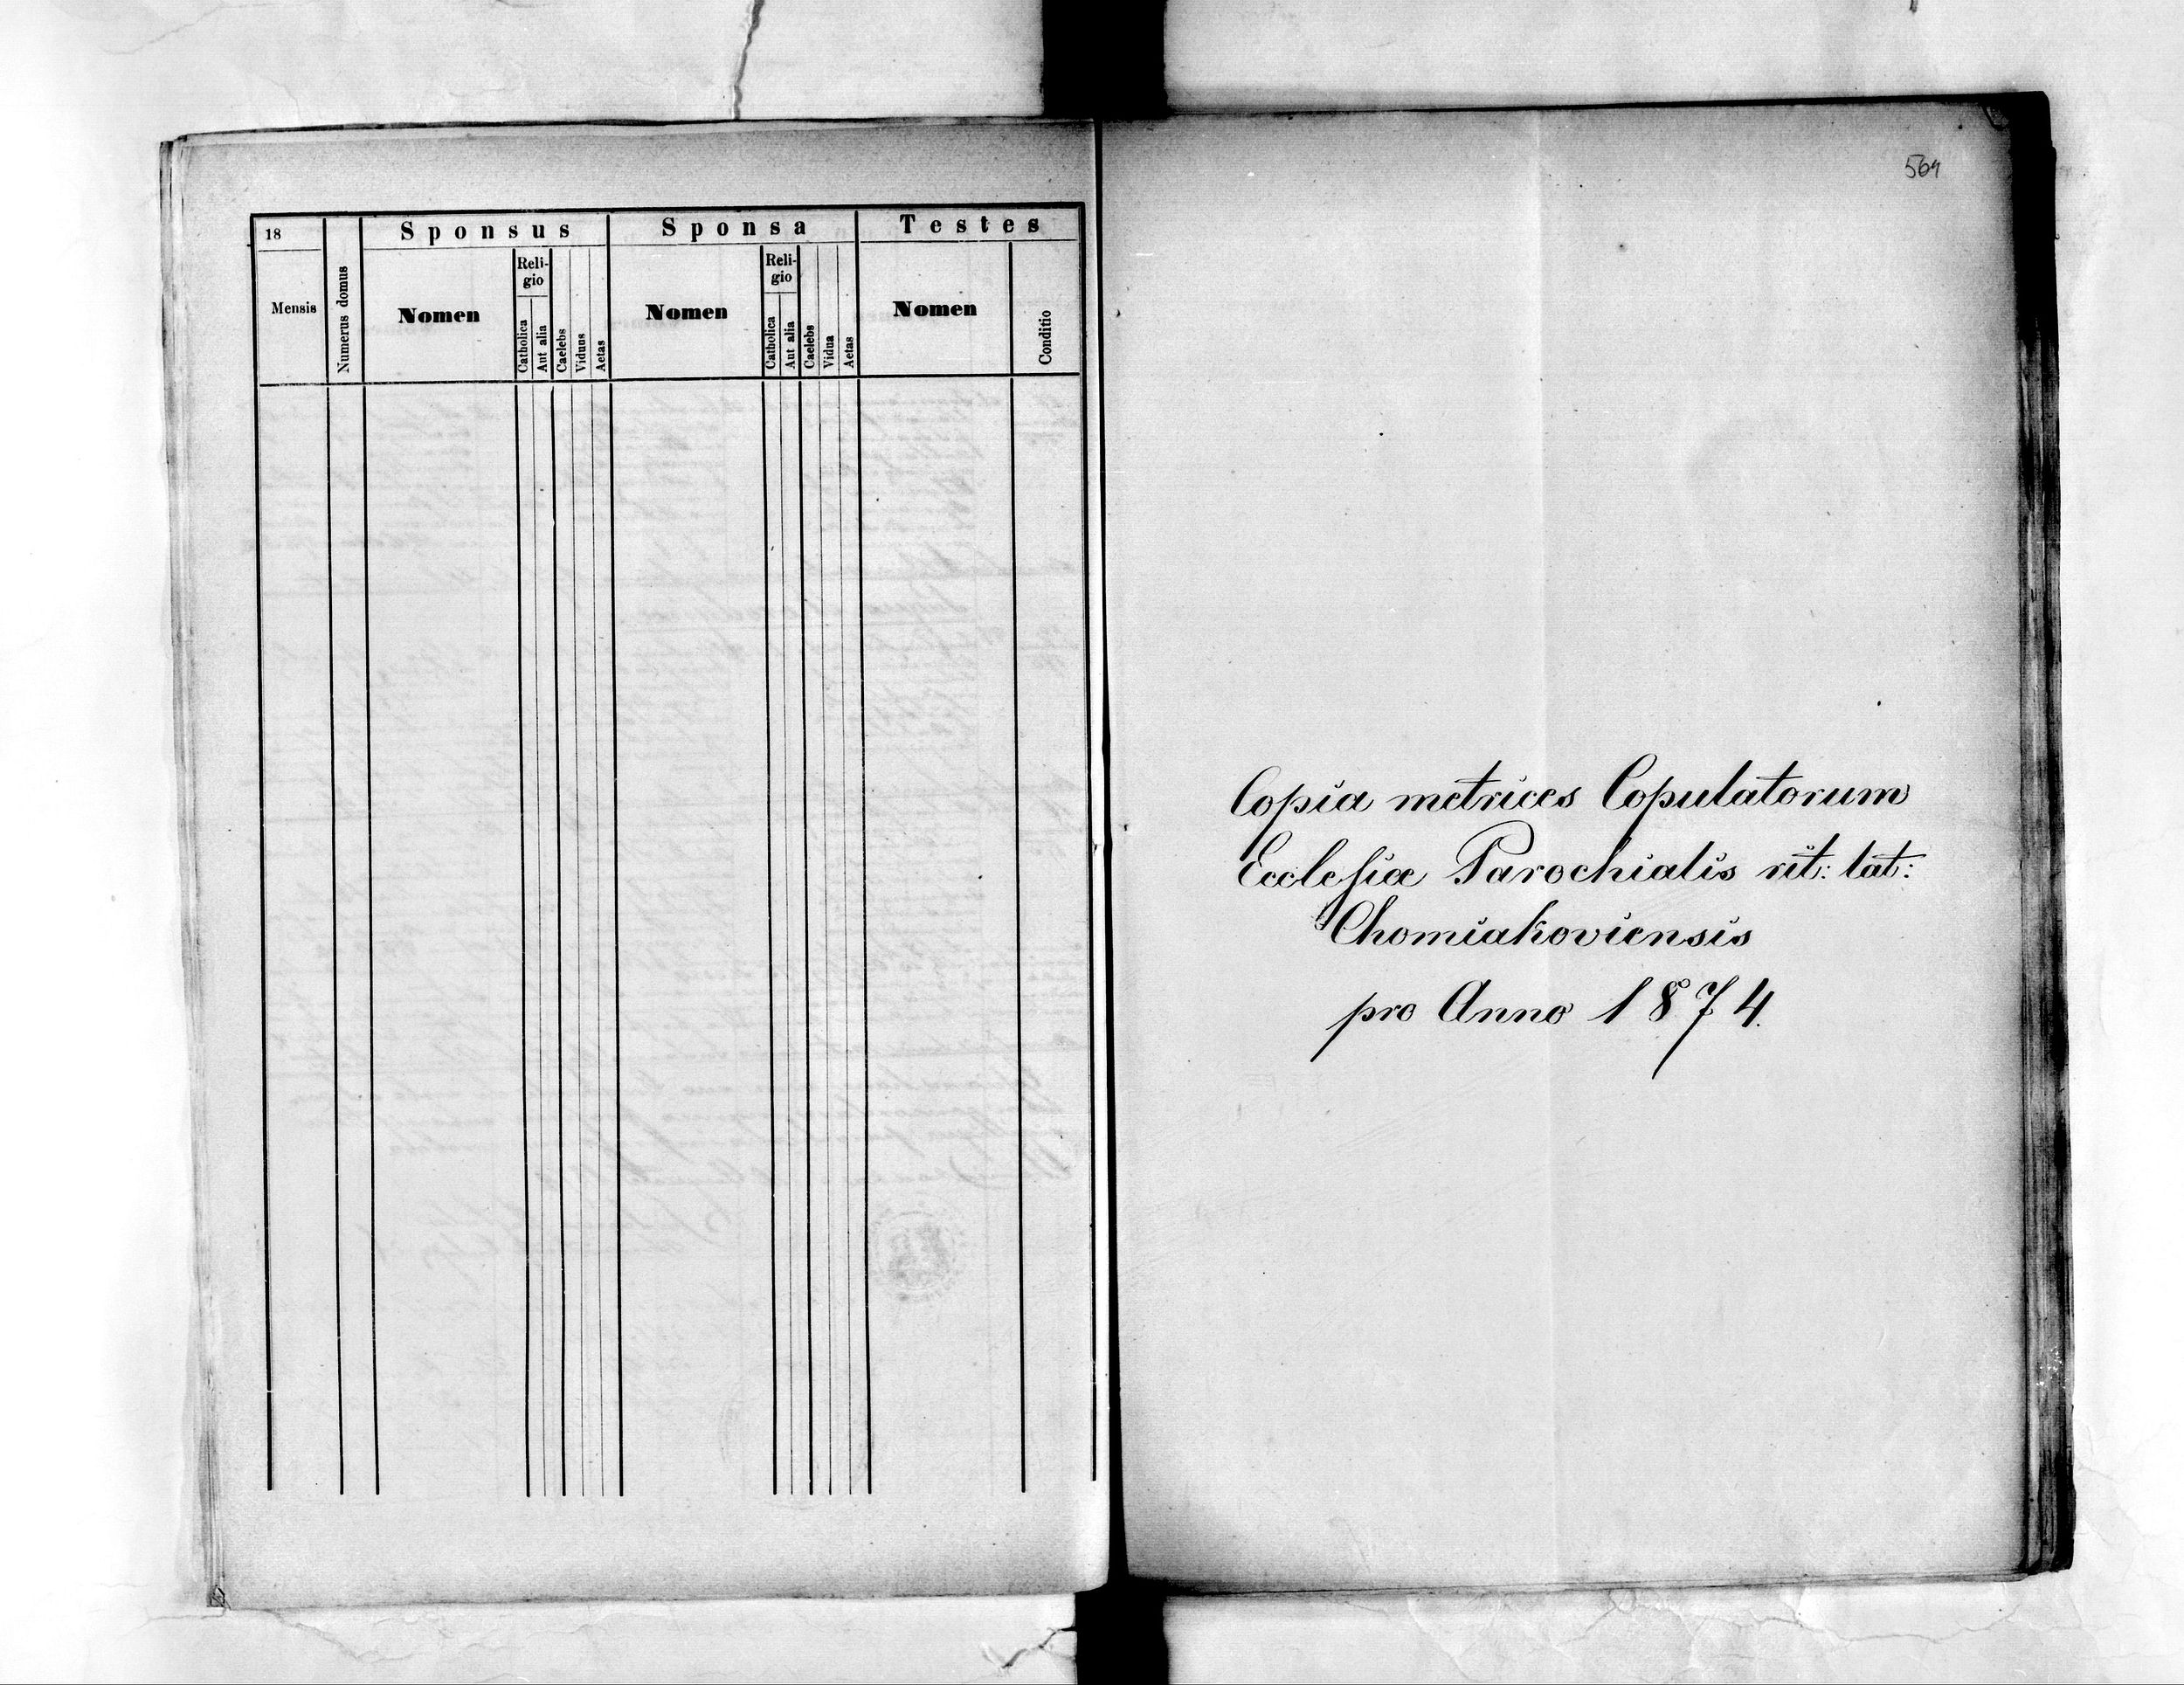 18
Mensis
Numerus domus
Sponsus
Nomen
Reli-
gio
Catholica
Aut alia
Caelebs
Viduus
Aetas
Sponsa
Nomen
Reli-
gio
Catholica
Aut alia
Caelebs
Vidua
Aetas
Testes
Nomen
Conditio
Copia metrices Copulatorum
Ecclesiæ Parochialis rit: lat:
Chomiakoviensis
pro Anno 1874.